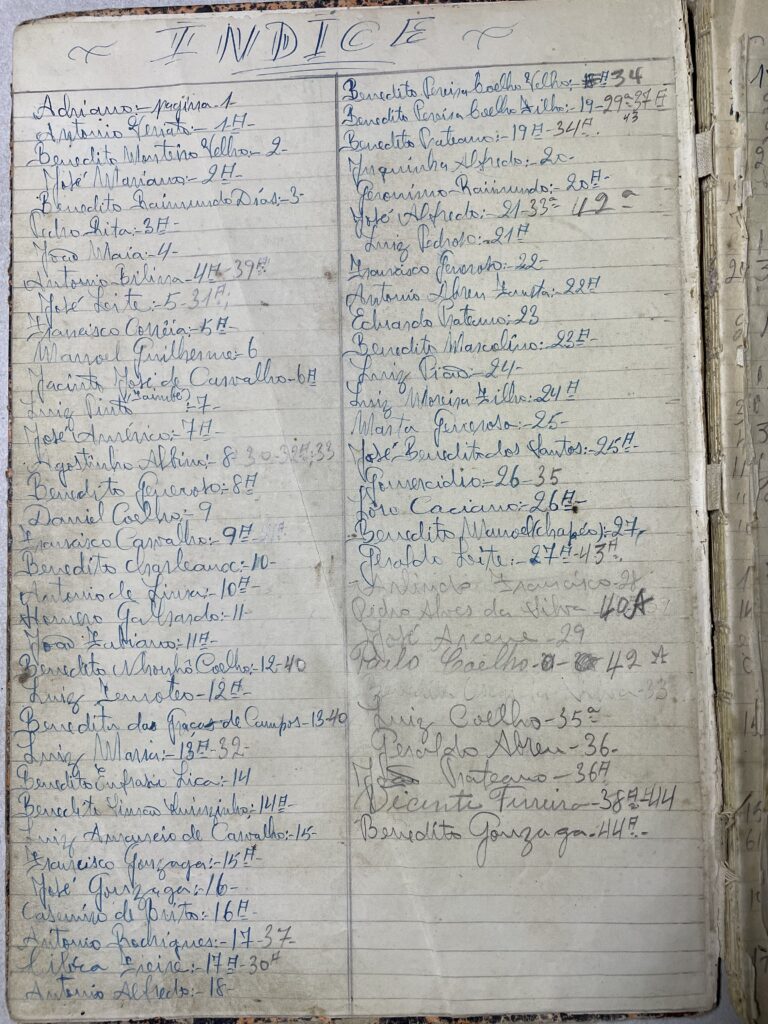 ~ INDICE ~
Adriano:- pagina-1
Antonio Renato:- 1A-
Benedito Monteiro Velho:- 2-
José Mariano:- 2A-
Benedito Raimundo Dias:- 3-
Pedro Rita:- 3A-
João Maia:- 4-
Antonio 4A-39A
José Leite:- 5-31A
Francisco Corrêia:- 5A-
Manoel Guilherme:- 6
Jacinto José de Carvalho:- 6A
Luiz Pinto 7-
José Américo:- 7A-
Agostinho Albino:- 8-30-32A-33
Benedito Generoso:- 8A
Daniel Coelho:- 9
Francisco Carvalho:- 9A-
Benedito 10-
Antonio de Lima:- 10A-
Homero Galhardo:- 11
João Fabiano:- 11A-
Benedito Nhonhô Coelho:- 12-40
Luiz 12A-
Benedita das Graças de Campos-13-40
Luiz 13A-32-
Benedito Eufrasio Lica:- 14
Benedito Simão 14A-
Luiz de Carvalho:- 15-
Francisco Gonzaga:- 15A-
José Gonzaga:- 16-
Casemiro de Brito:- 16A-
Antonio Rodrigues:- 17-37-
Freire:- 17A-30A
Antonio Alfredo:- 18-
Benedito Pereira Coelho Velho:- 34
Benedito Pereira Coelho Filho:- 19-29a-37A
43
Benedito Prateano:- 19A-34A.
Alfredo:- 20-
Geronimo Raimundo:- 20A-
José Alfredo:- 21-33a 42a
Luiz Pedroso:- 21A
Francisco Generoso:- 22-
Antonio Abreu 22A
Eduardo Prateano:- 23
Benedito Mascolino:- 23A-
Luiz Pião:- 24-
Luiz Moreira Filho:- 24A
Marta Generoso:- 25-
José Benedito dos Santos:- 25A-
Gomercidio:- 26-35
João Caciano:- 26A-
Benedito Manoel (chapéo):- 27,
Geraldo Leite:- 27A-43A.
Arlindo Francisco-28
Pedro Alves da Silva-40A
José -29
Paulo Coelho- 42A
33-
Luiz Coelho-35a
Geraldo Abreu-36-
Prateano-36A
Vicente Ferreira-38A-44
Benedito Gonzaga-44A-